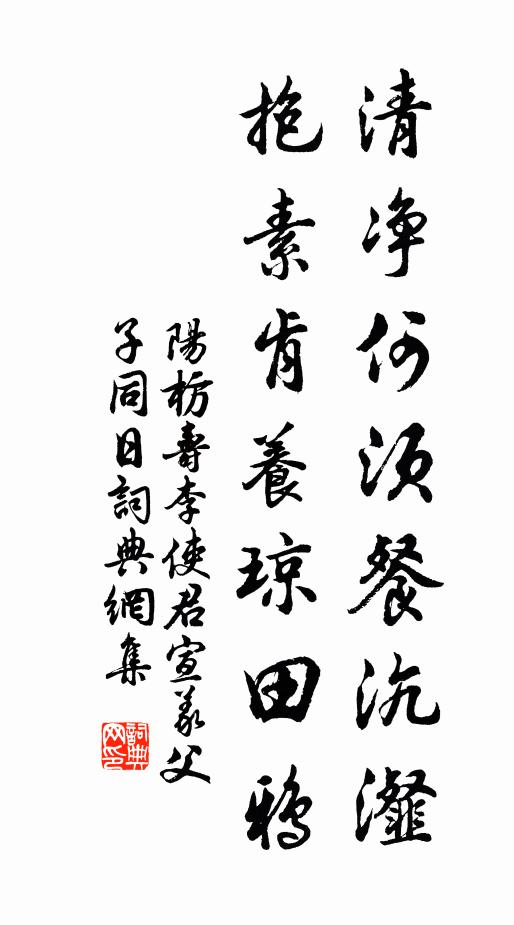 清净何須餐沆瀣
抱素肯養琼田鴉
陽枋壽李使君宣義父
子同日詞典網集
詞典网印